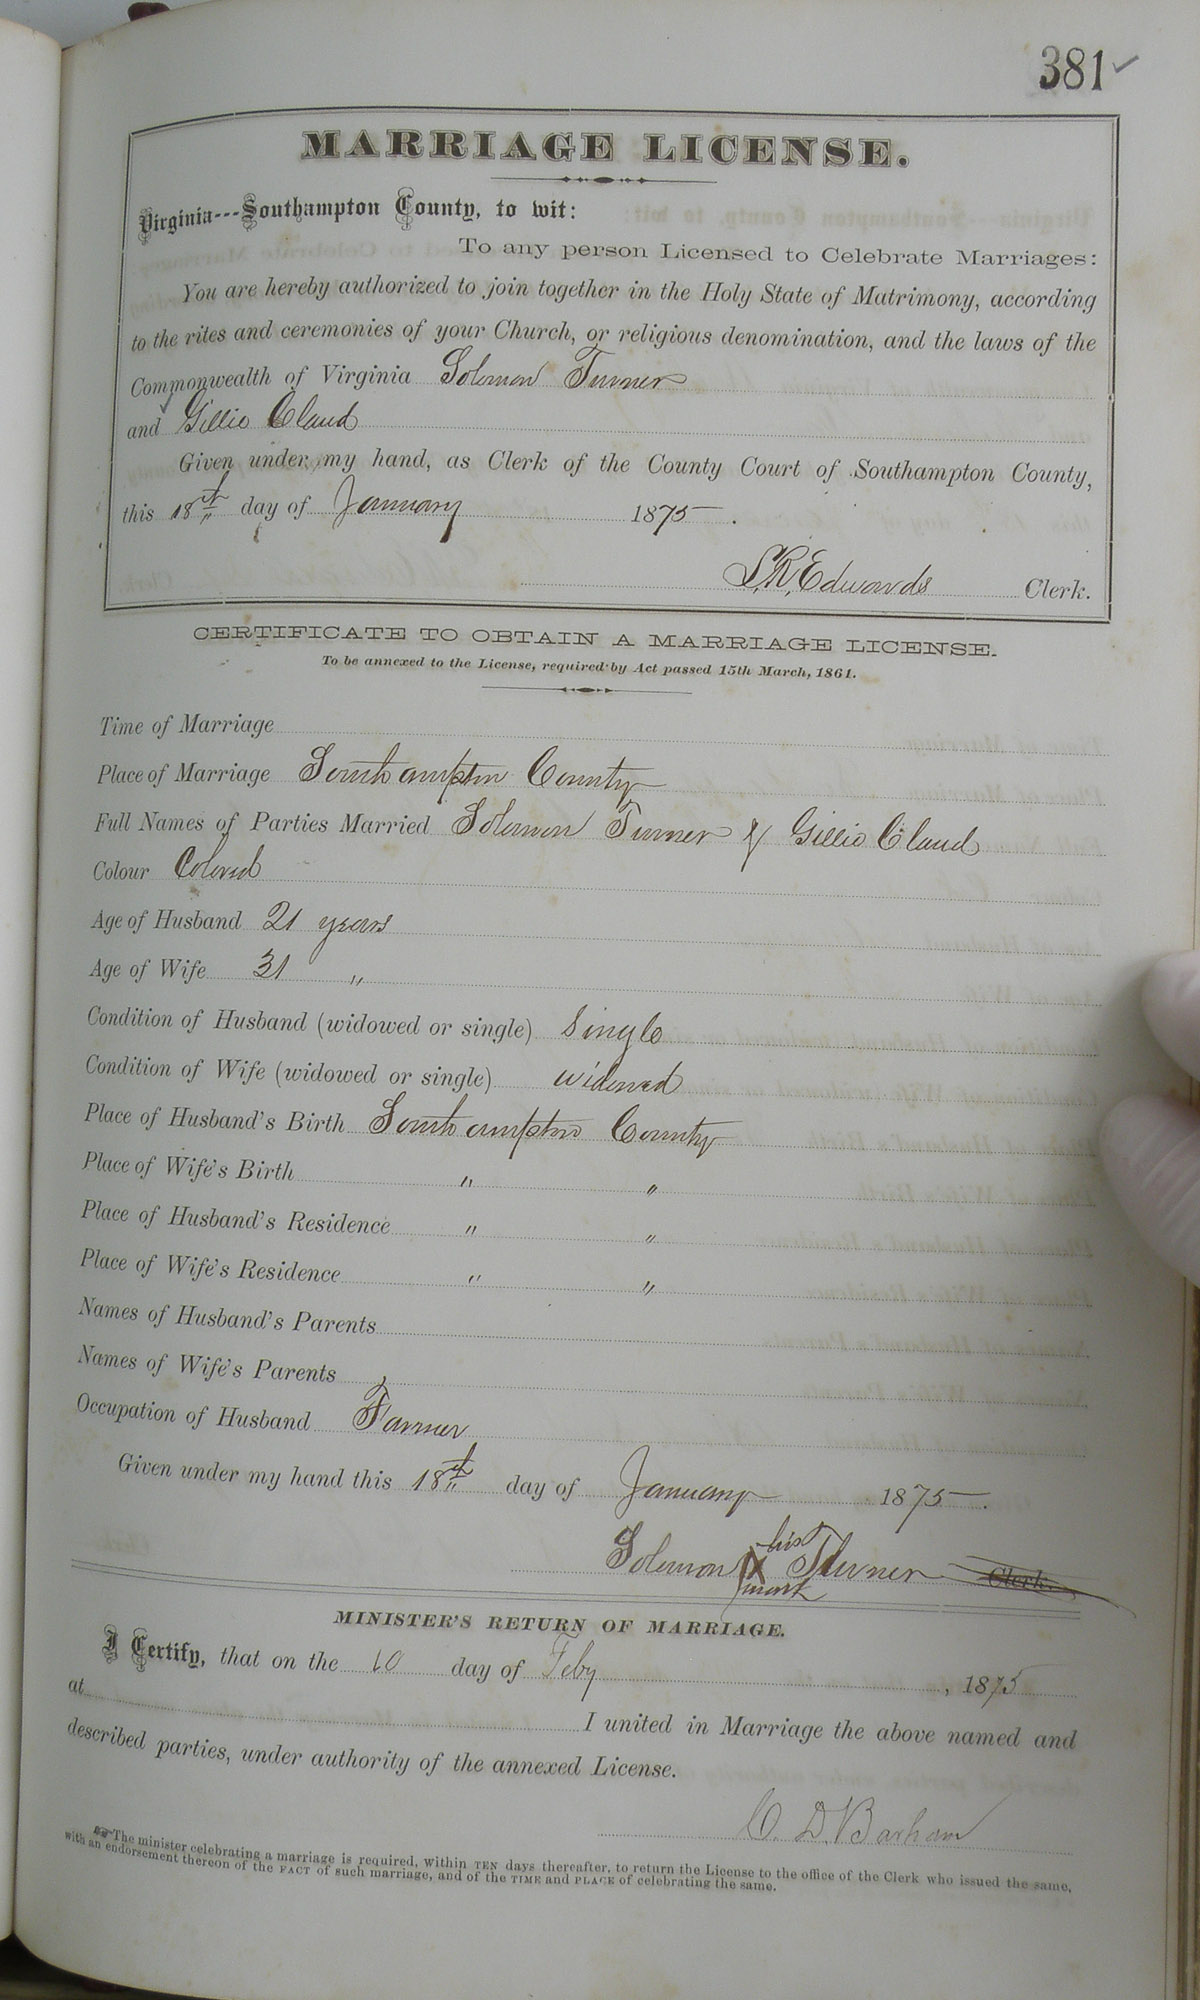 381 ✓
MARRIAGE LICENSE.
Virginia---Southampton County, to wit:
To any person Licensed to Celebrate Marriages:
You are hereby authorized to join together in the Holy State of Matrimony, according
to the rites and ceremonies of your Church, or religious denomination, and the laws of the
Commonwealth of Virginia Solomon Turner
and Gillie Claud
Given under my hand, as Clerk of the County Court of Southampton County,
this 18th day of January 1875.
S.R. Edwards Clerk.
CERTIFICATE TO OBTAIN A MARRIAGE LICENSE.
To be annexed to the License, required by Act passed 15th March, 1861.
Time of Marriage
Place of Marriage Southampton County
Full Names of Parties Married Solomon Turner & Gillie Claud
Colour Colored
Age of Husband 21 years
Age of Wife 31 "
Condition of Husband (widowed or single) Single
Condition of Wife (widowed or single) widowed
Place of Husband's Birth Southampton County
Place of Wife's Birth " "
Place of Husband's Residence " "
Place of Wife's Residence " "
Names of Husband's Parents
Names of Wife's Parents
Occupation of Husband Farmer
Given under my hand this 18th day of January 1875.
his
Solomon X Turner Clerk.
mark
MINISTER'S RETURN OF MARRIAGE.
I Certify, that on the 10 day of Feby, 1875
at I united in Marriage the above named and
described parties, under authority of the annexed License.
C. D. Barham
The minister celebrating a marriage is required, within TEN days thereafter, to return the License to the office of the Clerk who issued the same,
with an endorsement thereon of the FACT of such marriage, and of the TIME and PLACE of celebrating the same.